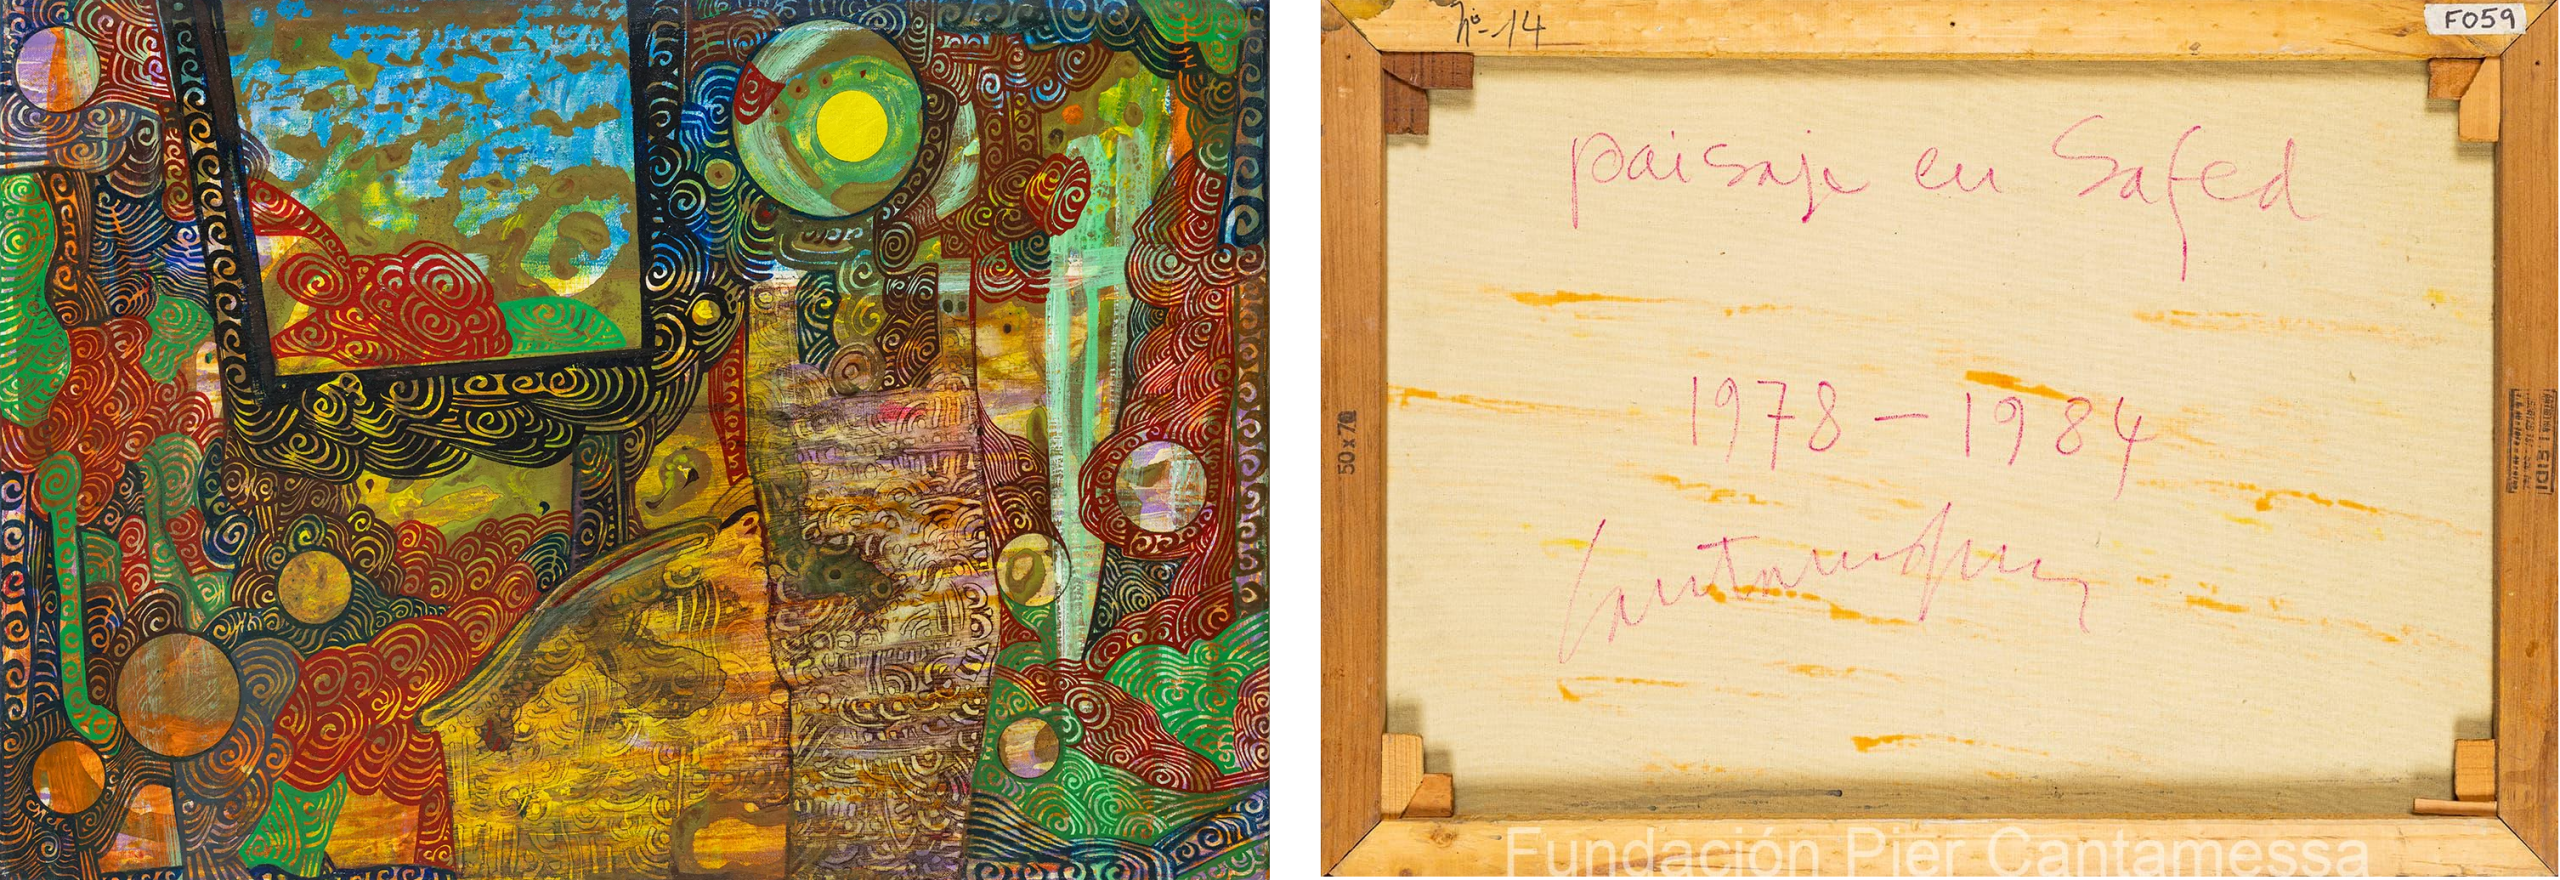 nº-14
F059
paisaje en Safed
1978-1984
Cantamessa
50 x 70
Fundación Pier Cantamessa